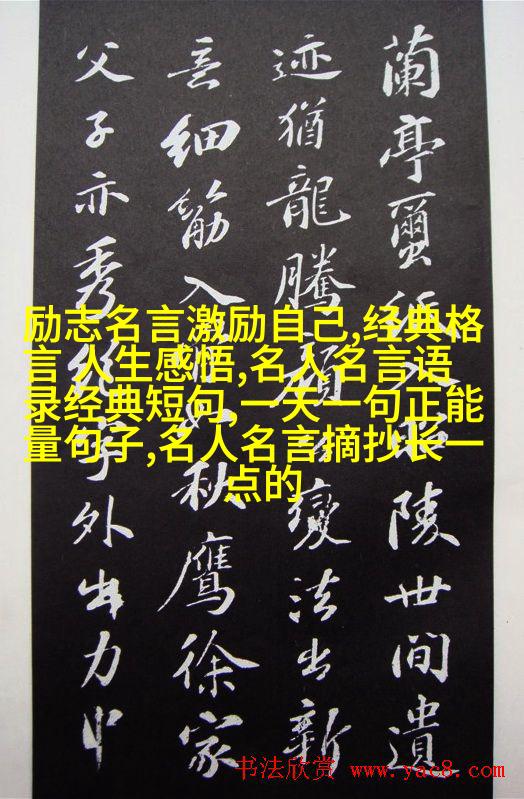 励志名言激励自己,经典格
言 人生感悟,名人名言语
录经典短句,一天一句正能
量句子,名人名言摘抄长一
点的
蘭亭繭紙入昭陵世間遺
迹猶龍騰顏公變法出新
意細筋入如秋鷹徐家
父子亦秀絶字外出力中
书法欣赏 www.yac8.com